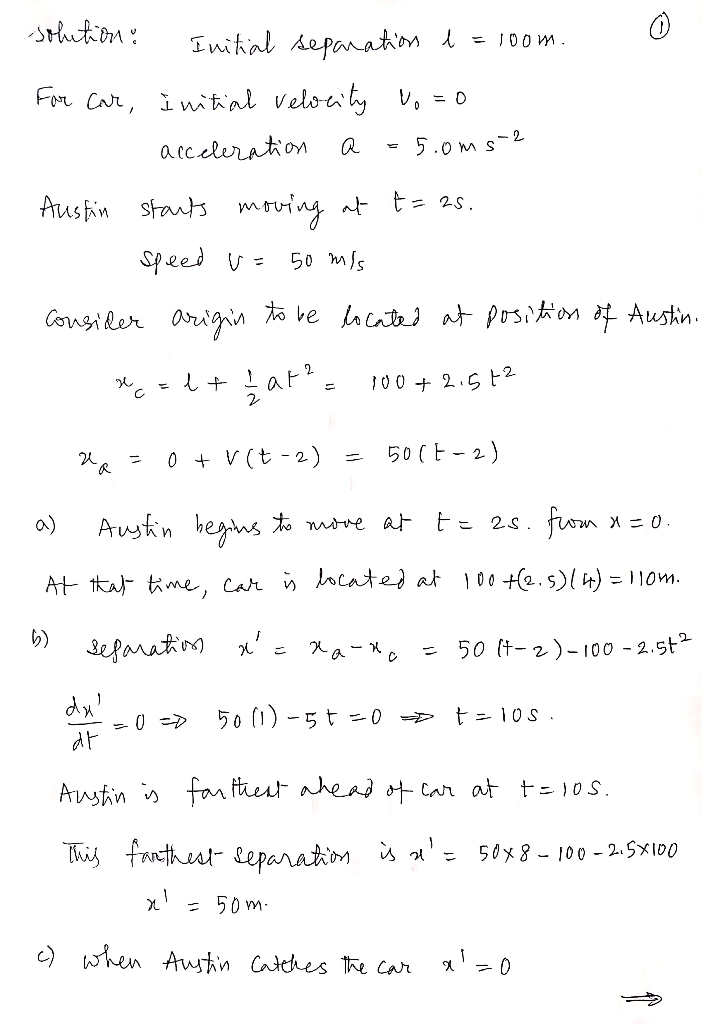 ①
solution: Initial separation l = 100m.
For car, initial velocity V₀ = 0
acceleration a = 5.0 m s⁻²
Austin starts moving at t = 2s.
speed v = 50 m/s
consider origin to be located at position of Austin.
x_c = l + 1/2 at² = 100 + 2.5 t²
x_a = 0 + V(t-2) = 50(t-2)
a) Austin begins to move at t = 2s. from x = 0.
At that time, car is located at 100 + (2.5)(4) = 110m.
b) separation x' = x_a - x_c = 50 (t-2) - 100 - 2.5t²
dx'/dt = 0 ⇒ 50(1) - 5t = 0 ⇒ t = 10s.
Austin is farthest ahead of car at t = 10s.
This farthest separation is x' = 50×8 - 100 - 2.5×100
x' = 50m.
c) when Austin catches the car x' = 0
⇒